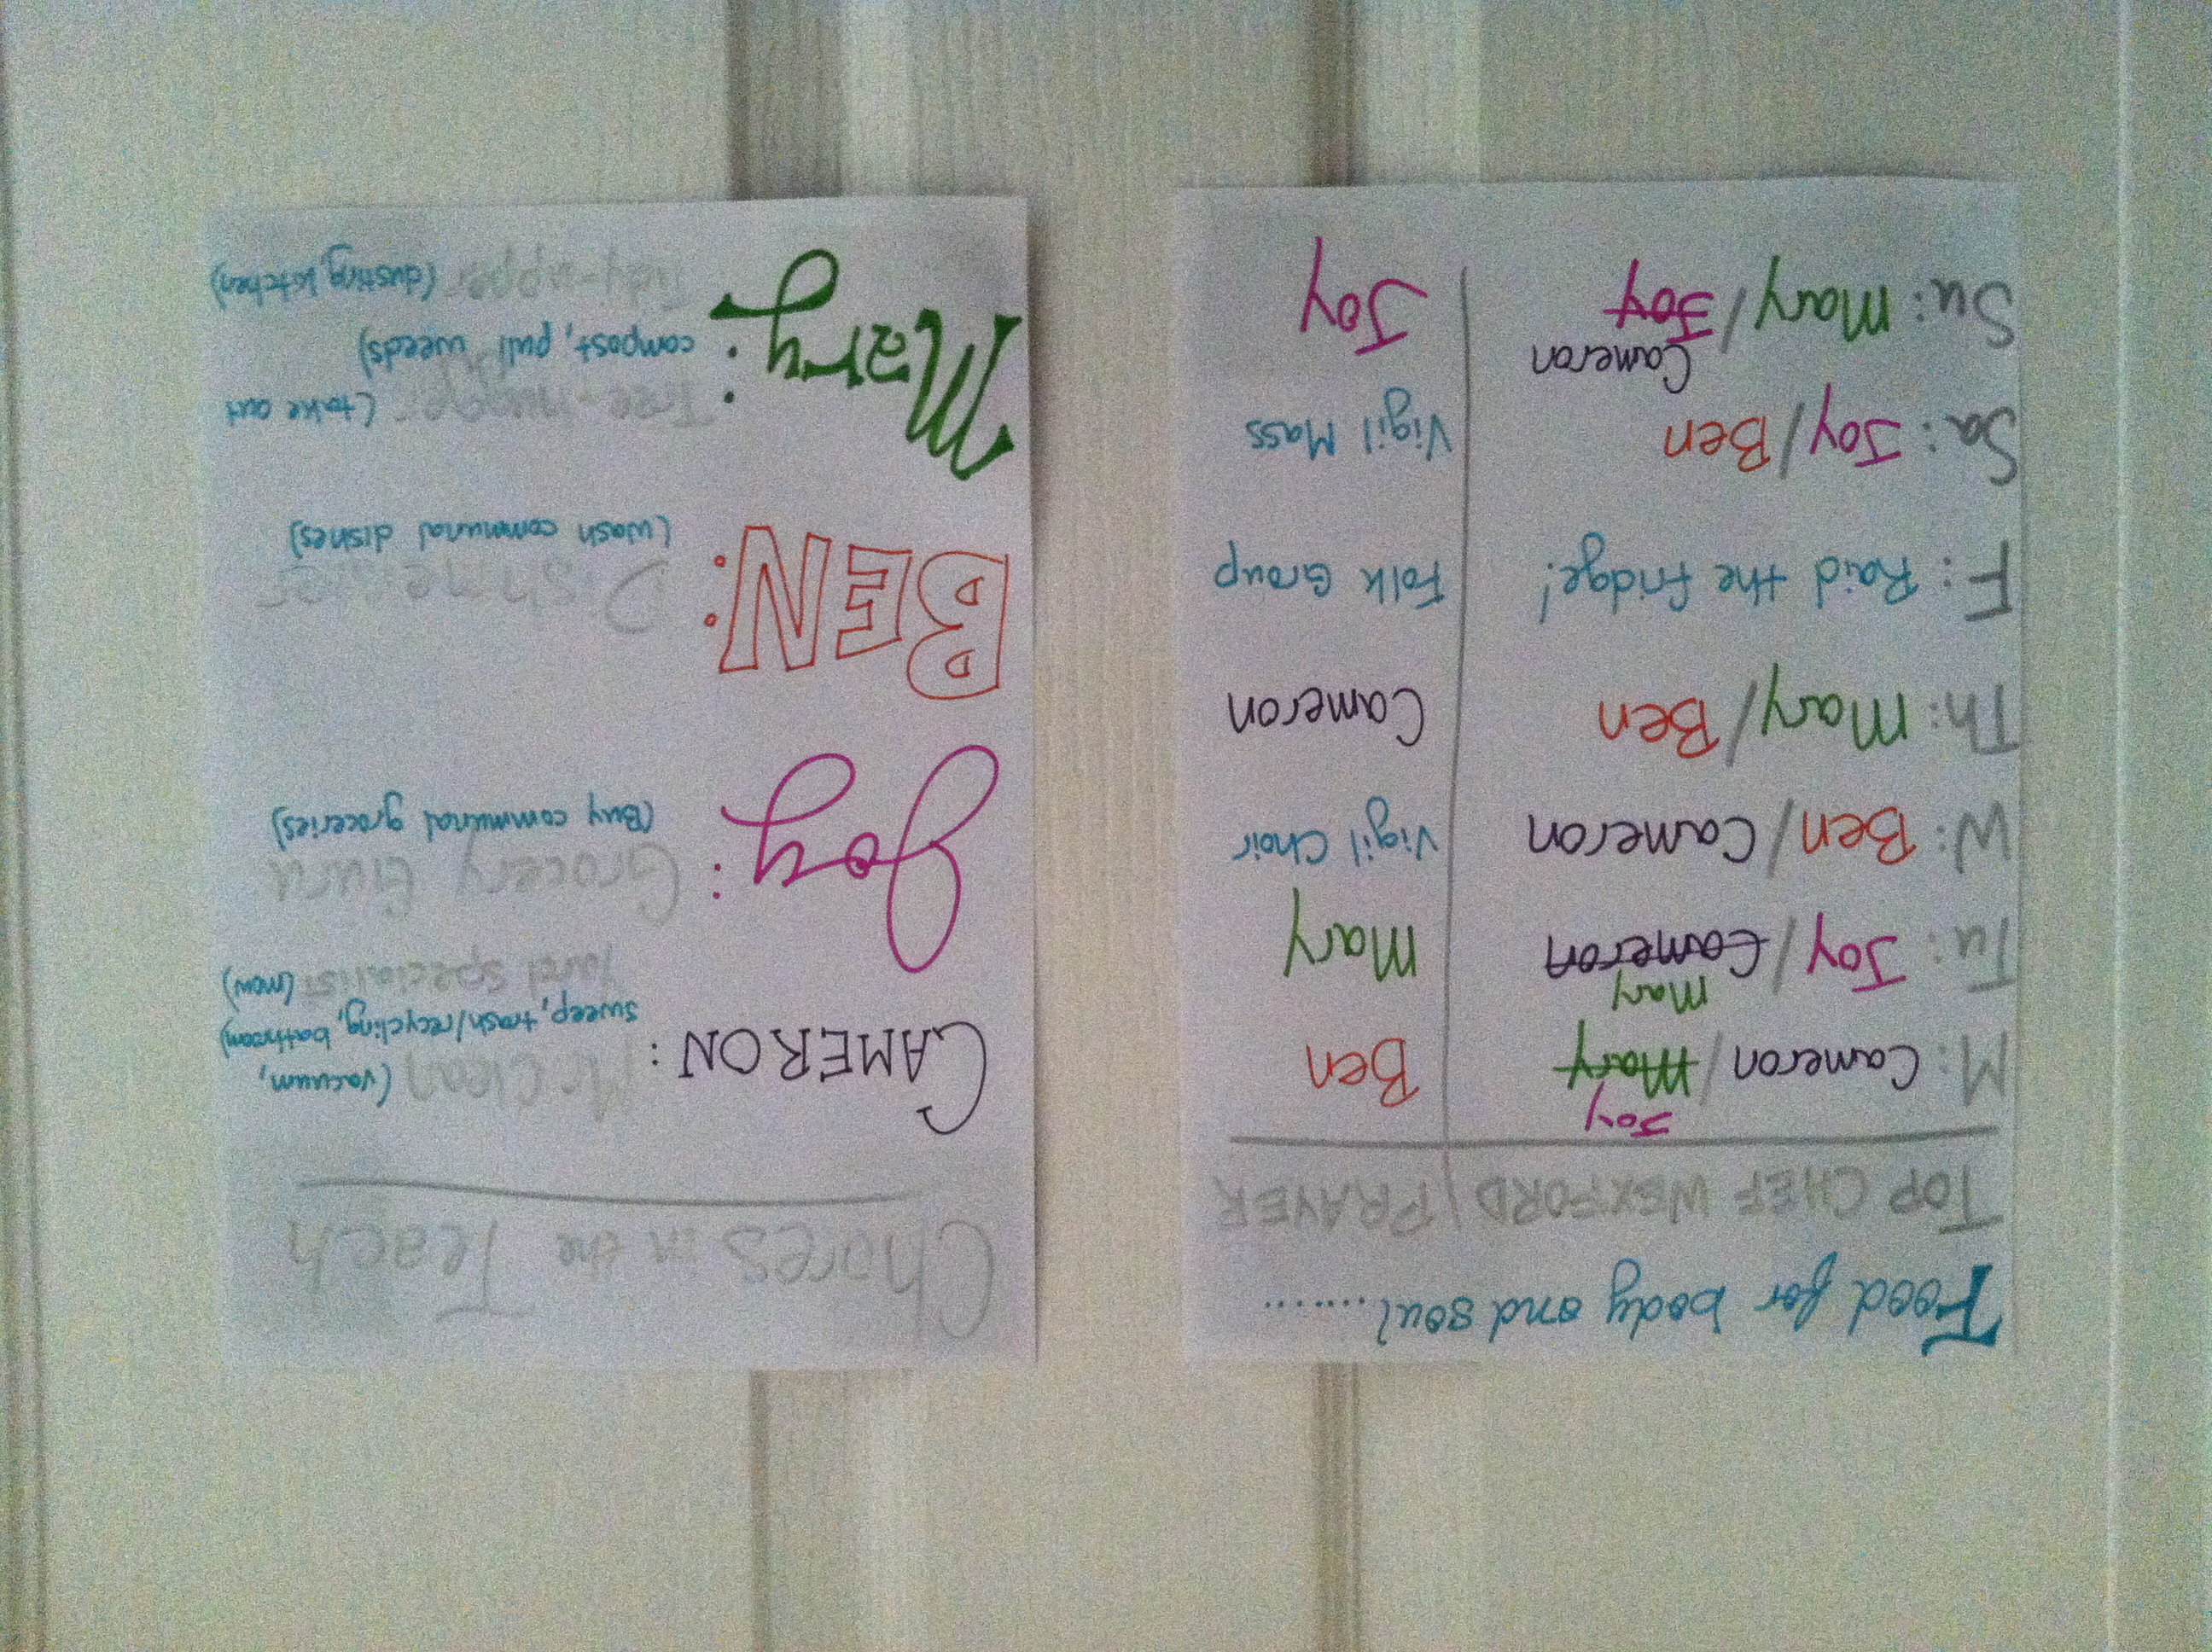 Food for body and soul........
TOP CHEF WEXFORD / PRAYER
Joy
M: Cameron/Mary Ben
Mary
Tu: Joy/Cameron Mary
W: Ben/Cameron Vigil Choir
Th: Mary/Ben Cameron
F: Raid the fridge! Folk Group
Sa: Joy/Ben Vigil Mass
Cameron
Su: Mary/Joy Joy
Chores in the Teach
CAMERON: Mr Clean (vacuum,
sweep, trash/recycling, bathroom)
Yard specialist (mow)
Joy: Grocery Guru
(Buy communal groceries)
BEN: Dishmeister
(wash communal dishes)
Mary: Tree-hugger (take out
compost, pull weeds)
Tidy-upper (dusting, kitchen)